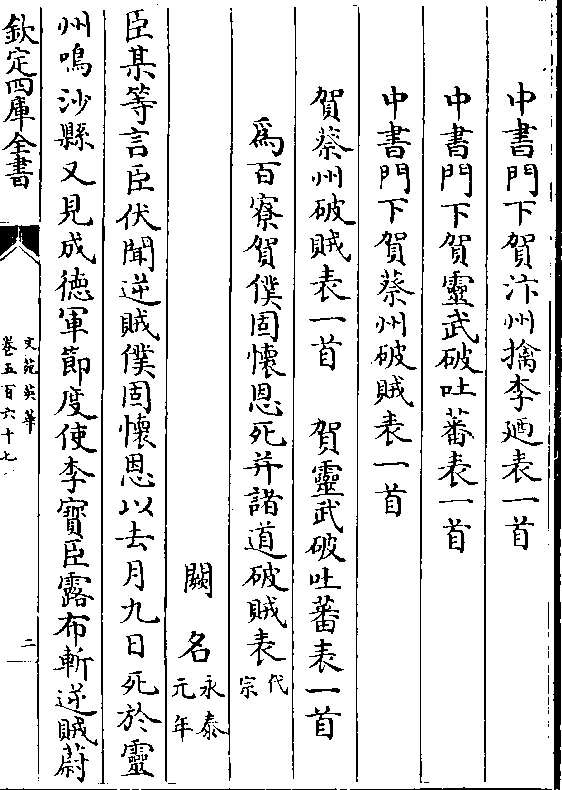 中書門下賀汴州擒李廼表一首
中書門下賀靈武破吐蕃表一首
中書門下賀蔡州破賊表一首
賀蔡州破賊表一首　賀靈武破吐蕃表一首
爲百寮賀僕固懷恩死并諸道破賊表代宗
闕名永泰元年
臣某等言臣伏聞逆賊僕固懷恩以去月九日死於靈
州鳴沙縣又見成德軍節度使李寶臣露布斬逆賊蔚
欽定四庫全書
文苑英華
卷五百六十七
二